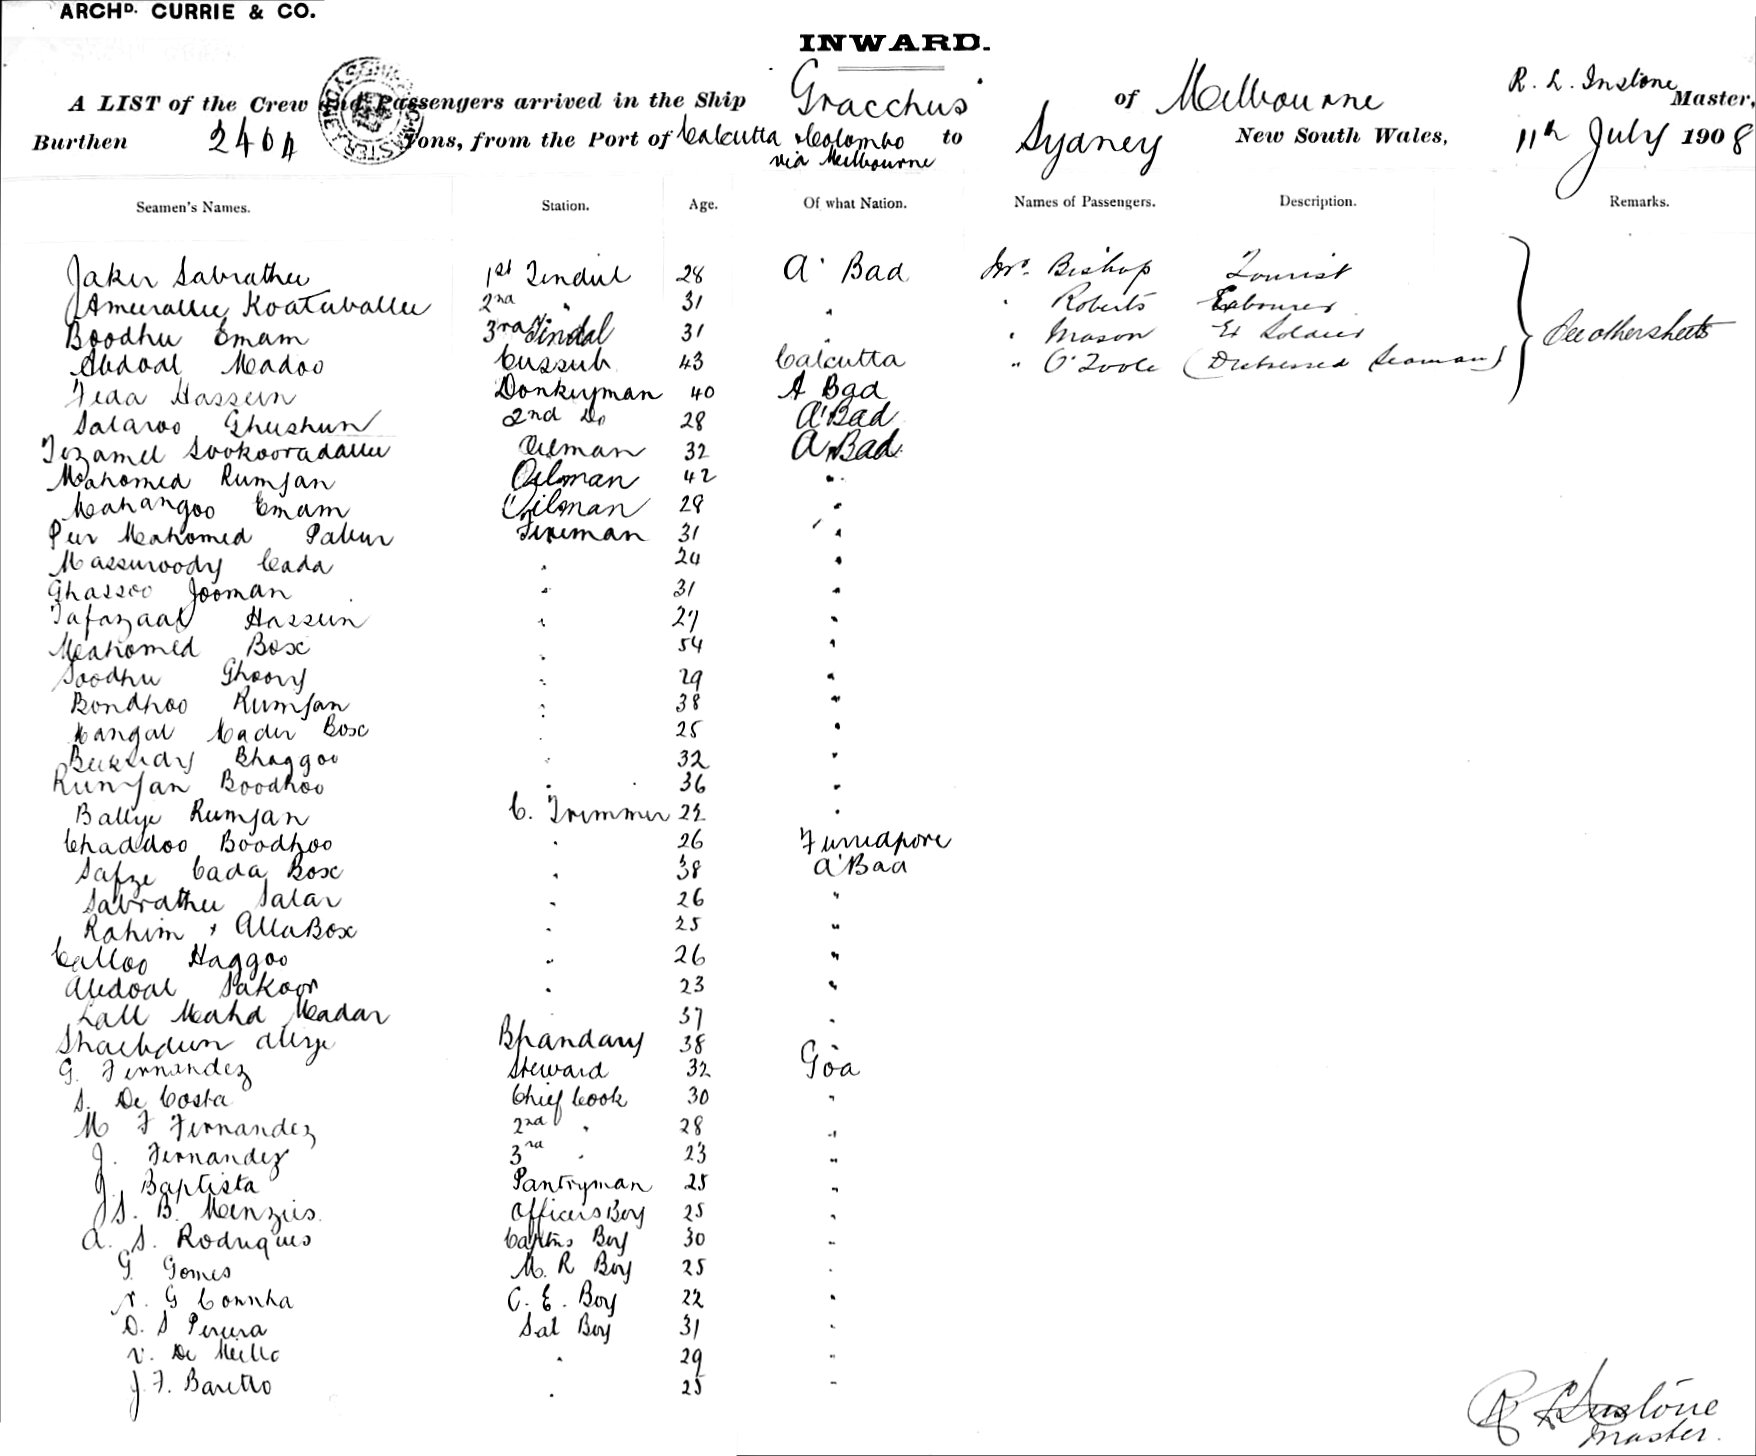 ARCHD. CURRIE & CO.
INWARD.
A LIST of the Crew and Passengers arrived in the Ship Gracchus of Melbourne R. L. Instone Master,
Burthen 2404 Tons, from the Port of Calcutta & Colombo via Melbourne to Sydney New South Wales, 11th July 1908
Seamen's Names. Station. Age. Of what Nation. Names of Passengers. Description. Remarks.
Jaker Sabrathee 1st Tindul 28 A' Bad Mr. Bishop Tourist
Ameerallee Koatuballee 2nd " 31 " " Roberts Labourer
Boodhu Emam 3rd Tindal 31 " " Mason Ex Soldier See other sheets
Abdoal Madoo Cussub 43 Calcutta " O'Toole (Distressed Seaman)
Feda Hassein Donkeyman 40 A Bad
Salaroo Ghushun 2nd Do 28 A'Bad
Tozamel Sookooradallee Oilman 32 A Bad
Mahomed Rumjan Oilman 42 "
Mahangoo Emam Oilman 28 "
Peer Mahomed Pakur Fireman 31 "
Massuroody Cada " 24 "
Ghassoo Jooman " 31 "
Tafazaal Hassein " 27 "
Mahomed Box " 54 "
Soodhu Ghoory " 29 "
Bondhoo Rumjan " 38 "
Mangal Mader Box " 25 "
Bucksidy Bhaggoo " 32 "
Rumjan Boodhoo " 36 "
Ballye Rumjan C. Trimmer 22 "
Chaddoo Boodhoo " 26 Furredpore
Safze Cada Box " 38 A'Bad
Sabrathee Salar " 26 "
Rahim Alla Box " 25 "
Calloo Haggoo " 26 "
Abdoal Sakoor " 23 "
Lall Mahd Madar 37 "
Shaebdeen Alize Bhandary 38 "
G. Fernandez Steward 32 Goa
S. De Costa Chief Cook 30 "
M F Fernandez 2nd " 28 "
J. Fernandez 3rd " 23 "
J. Baptista Pantryman 25 "
J. S. B. Menzies Officers Boy 25 "
A. S. Rodriques Captns Boy 30 "
G. Gomes M. R Boy 25 "
N. G Counha C. E. Boy 22 "
D. S Pereira Sal Boy 31 "
V. De Mello " 29 "
J. F. Baretto " 25 "
R L Instone
Master.